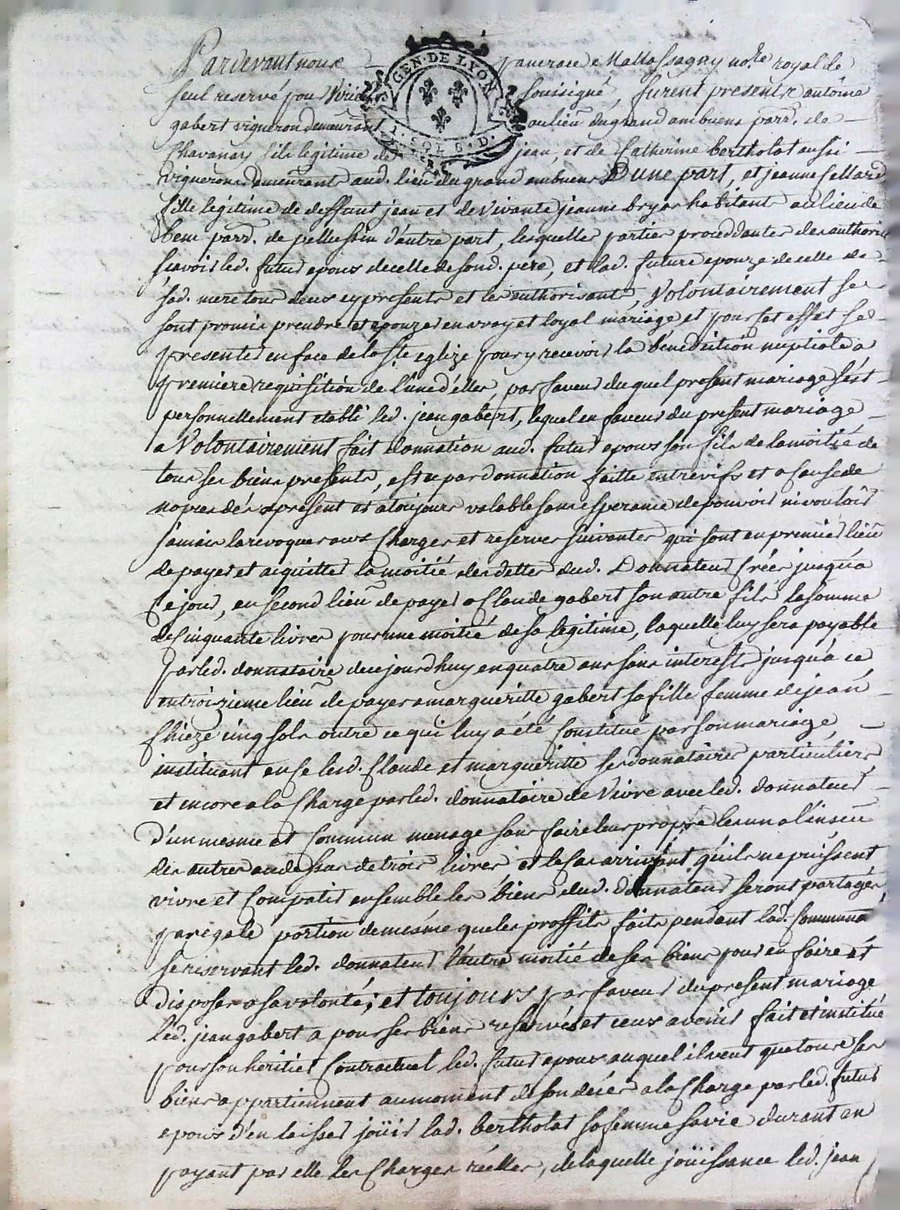 Pardevant nous pancrace Mallassagny not.re royal de
seul reservé pou Virieu soussigné furent presents antoine
GEN. DE LYON
1. SOL 5. D.
gabert vigneron demeurant au lieu du grand ambuens parr. de
Chavanay fils legitime de jean, et de Catherine bertholat aussi
vignerons demeurants aud. lieu du grand ambuens D'une part, et jeanne sellard
fille legitime de deffunt jean et de vivante jeanne boyer habitant au lieu de
parr. de pellussin d'autre part, lesquelles parties proceddantes des authorité
scavoir led. futur epoux de celle de son d. pere, et lad. future epouze de celle de
sad. mere tous deux cy presents et les authorisant, Volontairement se
sont promis prendre et epouzer en vray et loyal mariage, et pour cet effet se
presenter en face de la Ste eglize pour y recevoir la bénédiction nuptiale a
premiere requisition de l'une d'elles, par faveur du quel present mariage s'est
personnellement etabli led. jean gabert, lequel en faveur du present mariage
a Volontairement fait donnation aud. futur epoux son fils de la moitié de
tous ses biens presents, estre par donnation faitte entrevifs et a cause de
noces dés a present et a toujours valable sans esperance de pouvoir ni vouloir
jamais la revoquer aux Charges et reserves suivantes qui sont en premier lieu
de payer et acquitter la moitié des dettes dud. Donnateur Créés jusqu'a
Ce jour, en second lieu de payer a Claude gabert son autre fils la somme
de cinquante livres pour une moitié de sa legitime, laquelle luy sera payable
par led. donnataire de ce jourdhuy en quatre ans sans interests jusqu'a ce
en troizieme lieu de payer a margueritte gabert sa fille femme de jean
Chieze cinq sols outre ce qui luy a été Constitué par son mariage,
instituant en ce lesd. Claude et margueritte ses donnataires particuliers,
et encore a la Charge par led. donnataire de Vivre avec led. donnateur
d'un mesme et Commun menage sans faire leur propre les uns a l'insceu
des autres au dessus de trois livres et le Cas arrivant qu'ils ne puissent
vivre et Compatir ensemble les biens dud. Donnateur seront partagés
par egale portion de mesme que les proffits faits pendant lad. Communauté
se reservant led. donnateur l'autre moitié de ses biens pour en faire et
disposer a sa volonté; et toujours par faveur du present mariage
led. jean gabert a pour ses biens reservés et ceux avenir fait et institué
pour son heritier Contractuel led. futur epoux auquel il veut que tous ses
biens appartiennent au moment de son decés a la Charge par led. futur
epoux d'en laisser joüir lad. bertholat sa femme sa vie durant en
payant par elle les Charges réelles, de laquelle joüissance led. jean